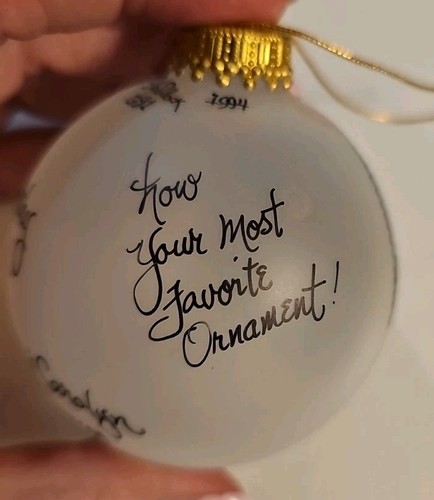 1994
Now
Your Most
Favorite
Ornament!
Carolyn